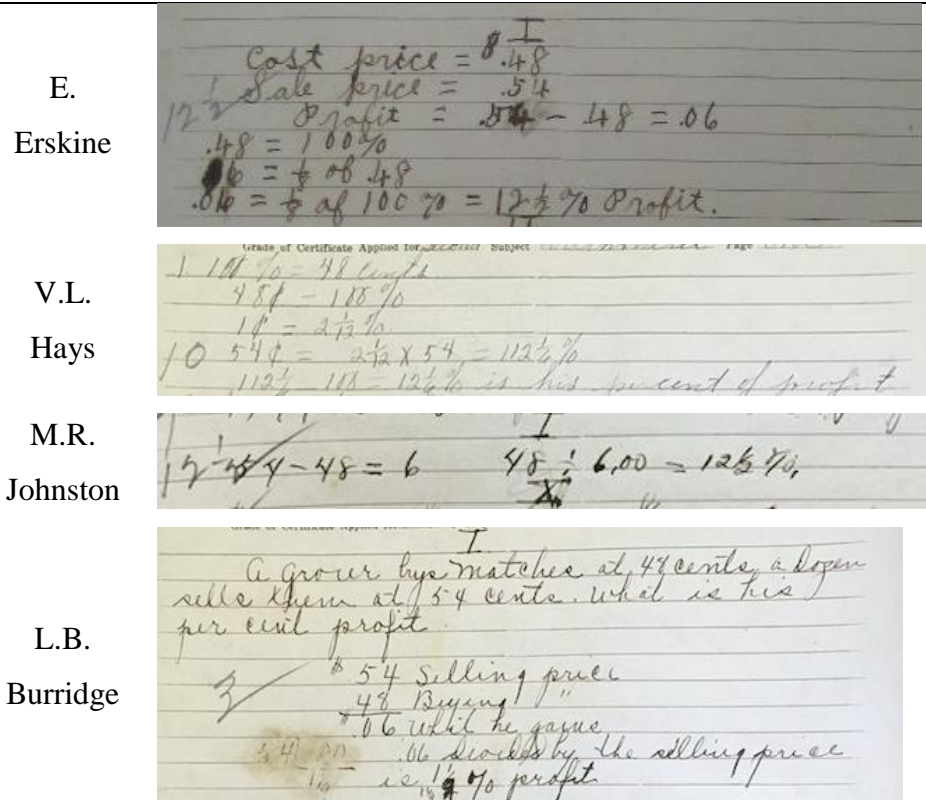 E.
Erskine
I
Cost price = $.48
12 1/2 Sale price = .54
Profit = .54 - .48 = .06
.48 = 100%
.06 = 1/8 of .48
.06 = 1/8 of 100 % = 12 1/2 % Profit.
II
V.L.
Hays
Grade of Certificate Applied for Subject Page
1 100 % = 48 cents
48¢ - 100 %
1¢ = 2 1/12 %
10 54¢ = 2 1/12 X 54 = 112 1/2 %
112 1/2 - 100 = 12 1/2 % is his percent of profit
M.R.
Johnston
I
12 1/2 54 - 48 = 6 48 ÷ 6.00 = 12 1/2 %.
L.B.
Burridge
Grade of Certificate Applied
I
A Grocer bys matches at 48 cents a Dozen
sells them at 54 cents. What is his
per cent profit
3 $ 54 Selling price
48 Buying "
$.06 what he gains
54 .06 divided by the selling price
is % profit